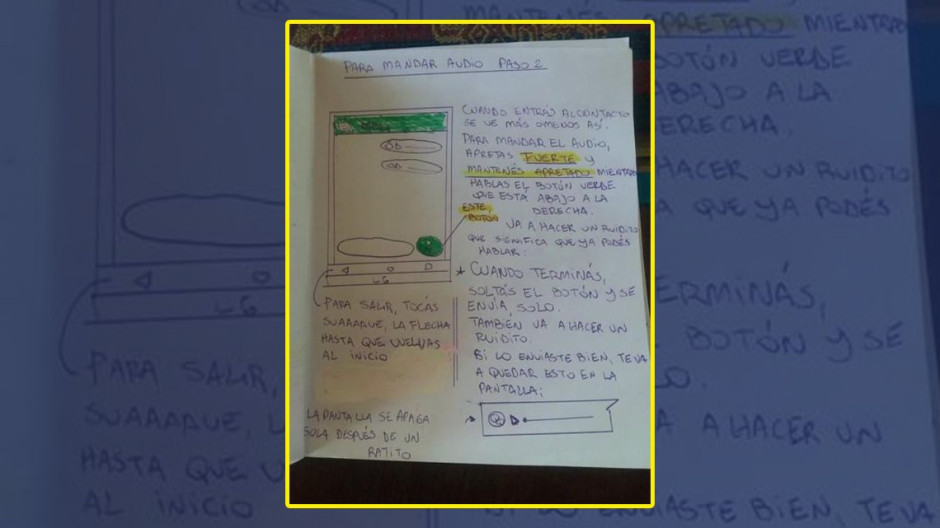 PARA MANDAR AUDIO PASO 2
CUANDO ENTRÁS AL CONTACTO
SE VE MÁS O MENOS ASÍ.
PARA MANDAR EL AUDIO,
APRETAS FUERTE Y
MANTENÉS APRETADO MIENTRAS
HABLAS EL BOTÓN VERDE
QUE ESTA ABAJO A LA
DERECHA.
ESTE
BOTÓN
VA A HACER UN RUIDITO
QUE SIGNIFICA QUE YA PODÉS
HABLAR.
* CUANDO TERMINÁS,
SOLTÁS EL BOTÓN Y SE
ENVÍA, SOLO.
TAMBIÉN VA A HACER UN
RUIDITO.
SI LO ENVIASTE BIEN, TE VA
A QUEDAR ESTO EN LA
PANTALLA:
LG
PARA SALIR, TOCÁS
SUAAAQUE, LA FLECHA
HASTA QUE VUELVAS
AL INICIO
LA PANTALLA SE APAGA
SOLA DESPUÉS DE UN
RATITO